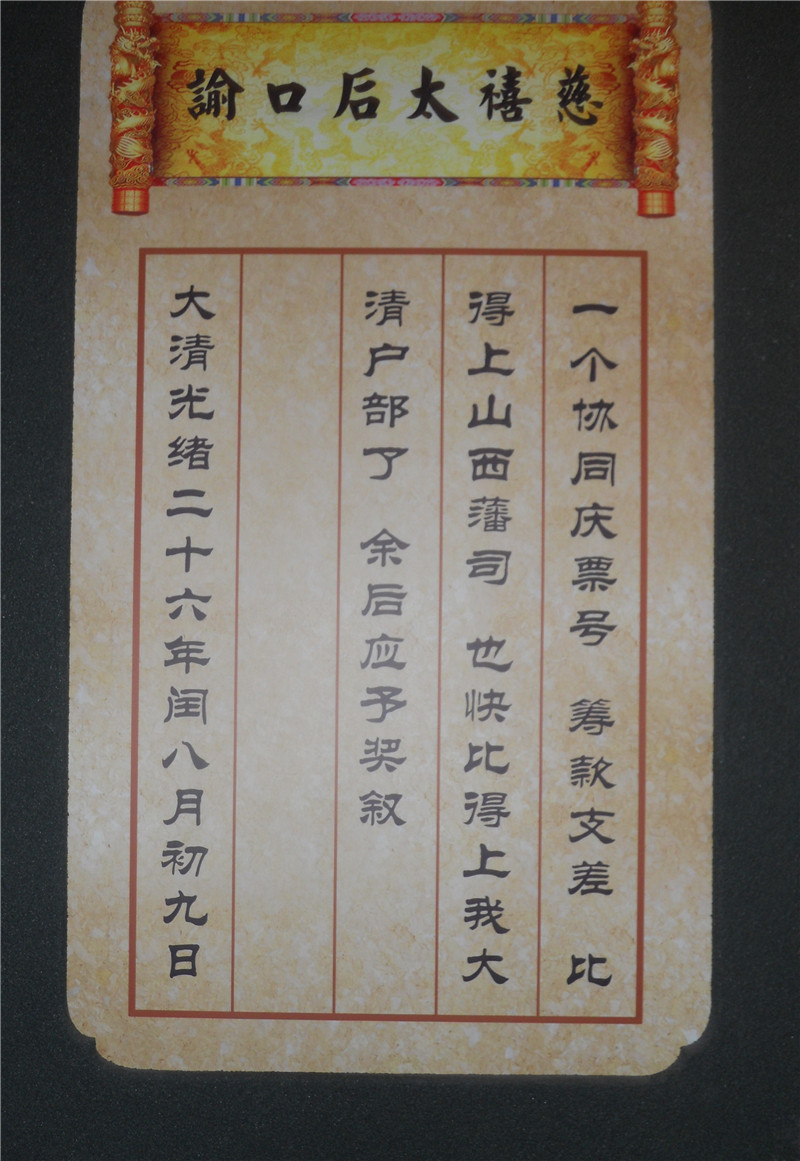 慈禧太后口諭
一个协同庆票号 筹款支差 比
得上山西藩司 也快比得上我大
清户部了 余后应予奖叙
大清光绪二十六年闰八月初九日